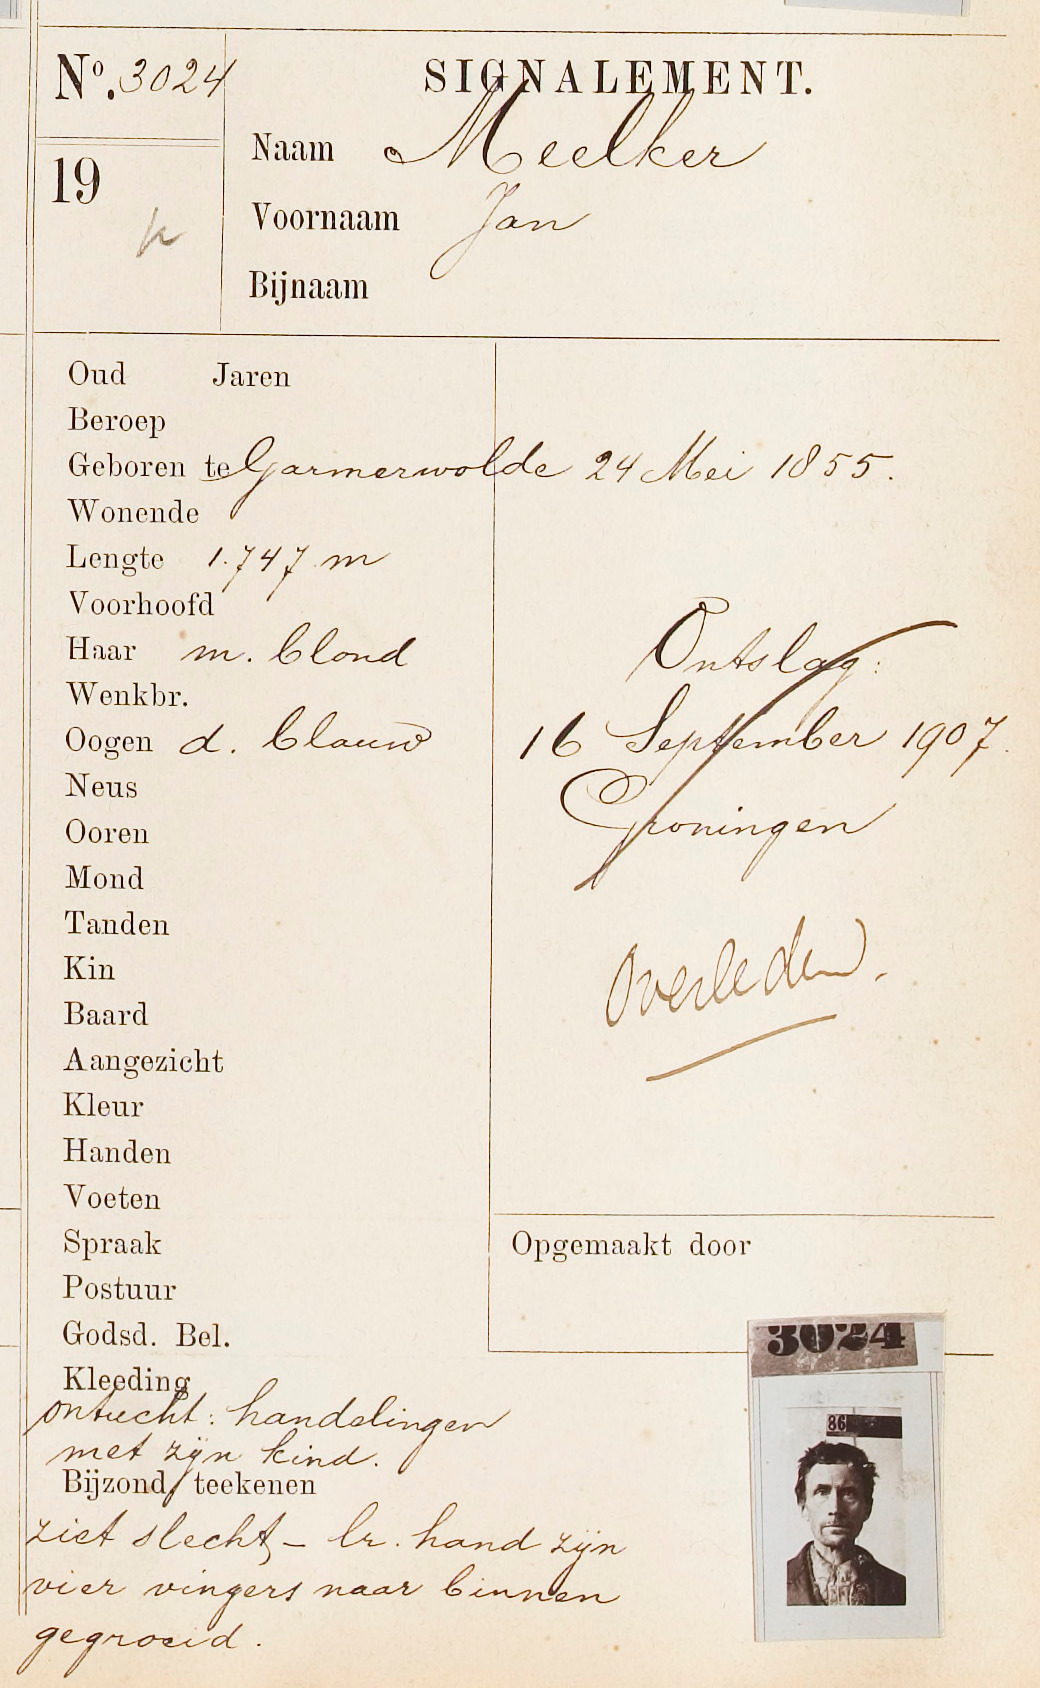 Nº. 3024
SIGNALEMENT.
19
Naam Meelker
Voornaam Jan
Bijnaam
Oud Jaren
Beroep
Geboren te Garmerwolde 24 Mei 1855.
Wonende
Lengte 1.747 m
Voorhoofd
Haar m. blond
Wenkbr.
Oogen d. blauw
Neus
Ooren
Mond
Tanden
Kin
Baard
Aangezicht
Kleur
Handen
Voeten
Spraak
Postuur
Godsd. Bel.
Kleeding
ontucht: handelingen
met zijn kind.
Bijzond. teekenen
ziet slecht - lr. hand zijn
vier vingers naar binnen
gegroeid.
Ontslag:
16 September 1907.
Groningen
Overleden.
Opgemaakt door
3024
86